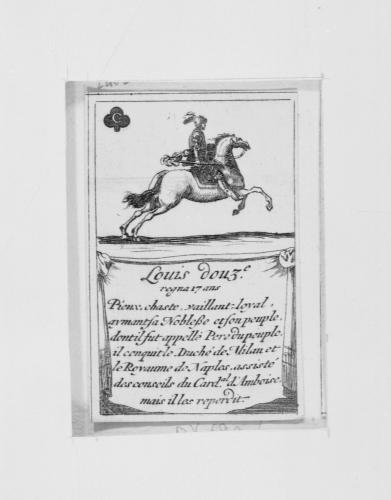 C
Louis douz.e
regna 17 ans
Pieux, chaste, vaillant, loyal,
aymant sa Noblesse et son peuple,
dont il fut appellé Pere du peuple,
il conquit le Duché de Milan et
le Royaume de Naples, assisté
des conseils du Card.al d'Amboise
mais il les reperdit.